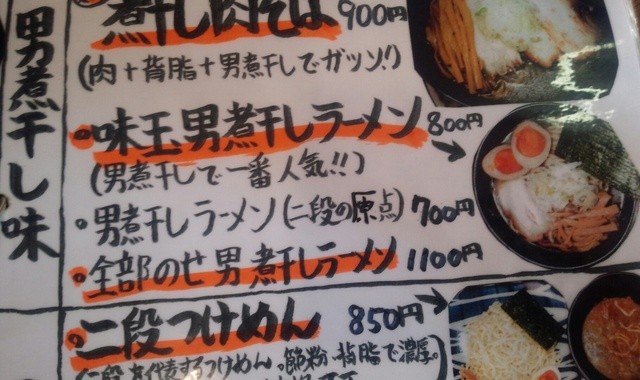 男煮干し味
煮干し肉そば 900円
(肉+背脂+男煮干しでガツン!)
・味玉男煮干しラーメン 800円
(男煮干しで一番人気!!)
・男煮干しラーメン(二段の原点) 700円
・全部のせ男煮干しラーメン 1100円
・二段つけめん 850円
(二段を代表するつけめん。節粉、背脂で濃厚。)